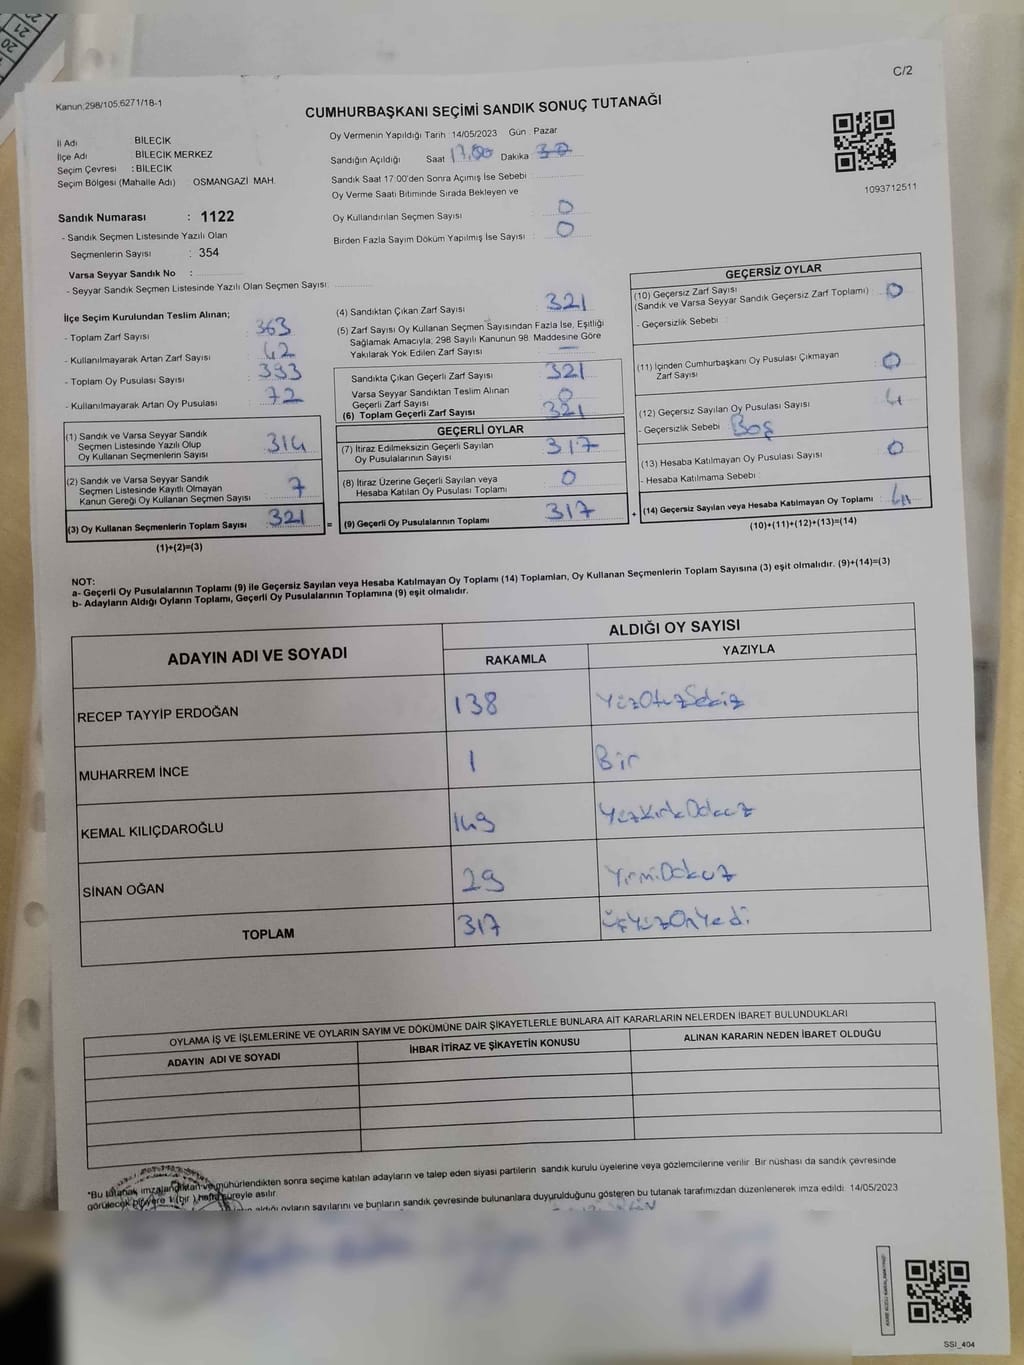 C/2
Kanun:298/105,6271/18-1
CUMHURBAŞKANI SEÇİMİ SANDIK SONUÇ TUTANAĞI
İl Adı BİLECİK
İlçe Adı BİLECİK MERKEZ
Seçim Çevresi : BİLECİK
Seçim Bölgesi (Mahalle Adı) OSMANGAZİ MAH.
Oy Vermenin Yapıldığı Tarih 14/05/2023 Gün Pazar
Sandığın Açıldığı Saat Dakika
Sandık Saat 17:00'den Sonra Açımış İse Sebebi
Oy Verme Saati Bitiminde Sırada Bekleyen ve
Oy Kullandırılan Seçmen Sayısı 0
Birden Fazla Sayım Döküm Yapılmış İse Sayısı : 0
1093712511
Sandık Numarası : 1122
- Sandık Seçmen Listesinde Yazılı Olan
Seçmenlerin Sayısı : 354
Varsa Seyyar Sandık No :
- Seyyar Sandık Seçmen Listesinde Yazılı Olan Seçmen Sayısı:
İlçe Seçim Kurulundan Teslim Alınan;
- Toplam Zarf Sayısı : 363
- Kullanılmayarak Artan Zarf Sayısı : 42
- Toplam Oy Pusulası Sayısı : 393
- Kullanılmayarak Artan Oy Pusulası : 72
(1) Sandık ve Varsa Seyyar Sandık
Seçmen Listesinde Yazılı Olup
Oy Kullanan Seçmenlerin Sayısı : 314
(2) Sandık ve Varsa Seyyar Sandık
Seçmen Listesinde Kayıtlı Olmayan
Kanun Gereği Oy Kullanan Seçmen Sayısı : 7
(3) Oy Kullanan Seçmenlerin Toplam Sayısı : 321
(1)+(2)=(3)
=
(4) Sandıktan Çıkan Zarf Sayısı 321
(5) Zarf Sayısı Oy Kullanan Seçmen Sayısından Fazla İse, Eşitliği
Sağlamak Amacıyla, 298 Sayılı Kanunun 98. Maddesine Göre
Yakılarak Yok Edilen Zarf Sayısı : —
Sandıkta Çıkan Geçerli Zarf Sayısı : 321
Varsa Seyyar Sandıktan Teslim Alınan
Geçerli Zarf Sayısı : 0
(6) Toplam Geçerli Zarf Sayısı : 321
GEÇERLİ OYLAR
(7) İtiraz Edilmeksizin Geçerli Sayılan
Oy Pusulalarının Sayısı : 317
(8) İtiraz Üzerine Geçerli Sayılan veya
Hesaba Katılan Oy Pusulası Toplamı : 0
(9) Geçerli Oy Pusulalarının Toplamı : 317
+
GEÇERSİZ OYLAR
(10) Geçersiz Zarf Sayısı
(Sandık ve Varsa Seyyar Sandık Geçersiz Zarf Toplamı) : 0
- Geçersizlik Sebebi :
(11) İçinden Cumhurbaşkanı Oy Pusulası Çıkmayan
Zarf Sayısı : 0
(12) Geçersiz Sayılan Oy Pusulası Sayısı : 4
- Geçersizlik Sebebi : Boş
(13) Hesaba Katılmayan Oy Pusulası Sayısı : 0
- Hesaba Katılmama Sebebi :
(14) Geçersiz Sayılan veya Hesaba Katılmayan Oy Toplamı :
(10)+(11)+(12)+(13)=(14)
NOT:
a- Geçerli Oy Pusulalarının Toplamı (9) ile Geçersiz Sayılan veya Hesaba Katılmayan Oy Toplamı (14) Toplamları, Oy Kullanan Seçmenlerin Toplam Sayısına (3) eşit olmalıdır. (9)+(14)=(3)
b- Adayların Aldığı Oyların Toplamı, Geçerli Oy Pusulalarının Toplamına (9) eşit olmalıdır.
ADAYIN ADI VE SOYADI ALDIĞI OY SAYISI
RAKAMLA YAZIYLA
RECEP TAYYİP ERDOĞAN 138 YüzOtuzSekiz
MUHARREM İNCE 1 Bir
KEMAL KILIÇDAROĞLU 149 YüzKırkDokuz
SİNAN OĞAN 29 YirmiDokuz
TOPLAM 317 ÜçYüzOnYedi
OYLAMA İŞ VE İŞLEMLERİNE VE OYLARIN SAYIM VE DÖKÜMÜNE DAİR ŞİKAYETLERLE BUNLARA AİT KARARLARIN NELERDEN İBARET BULUNDUKLARI
ADAYIN ADI VE SOYADI İHBAR İTİRAZ VE ŞİKAYETİN KONUSU ALINAN KARARIN NEDEN İBARET OLDUĞU
*Bu tutanak imzalandıktan ve mühürlendikten sonra seçime katılan adayların ve talep eden siyasi partilerin sandık kurulu üyelerine veya gözlemcilerine verilir. Bir nüshası da sandık çevresinde
görülecek bir yere 1 (bir) hafta süreyle asılır.
aldığı oyların sayılarını ve bunların sandık çevresinde bulunanlara duyurulduğunu gösteren bu tutanak tarafımızdan düzenlenerek imza edildi. 14/05/2023
SSI_404